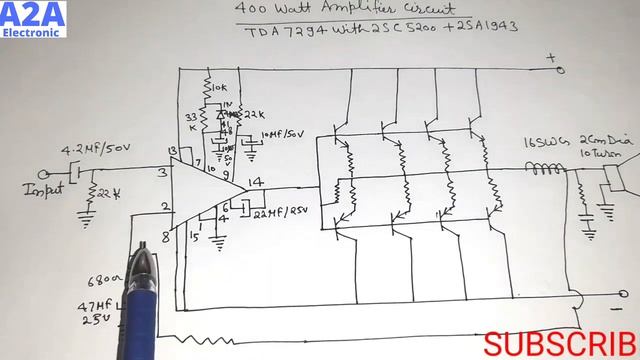 A2A
Electronic
400 Watt Amplifier Circuit
TDA7294 With 2SC5200 + 2SA1943
+
10K
33
K
1N
41
48
22K
10MF/50V
16SWG
2Cm Dia
10Turn
4.2MF/50V
13
7
10
9
3
14
Input
22K
6
22MF/25V
2
1
4
15
8
680Ω
47MF
25V
-
SUBSCRIB